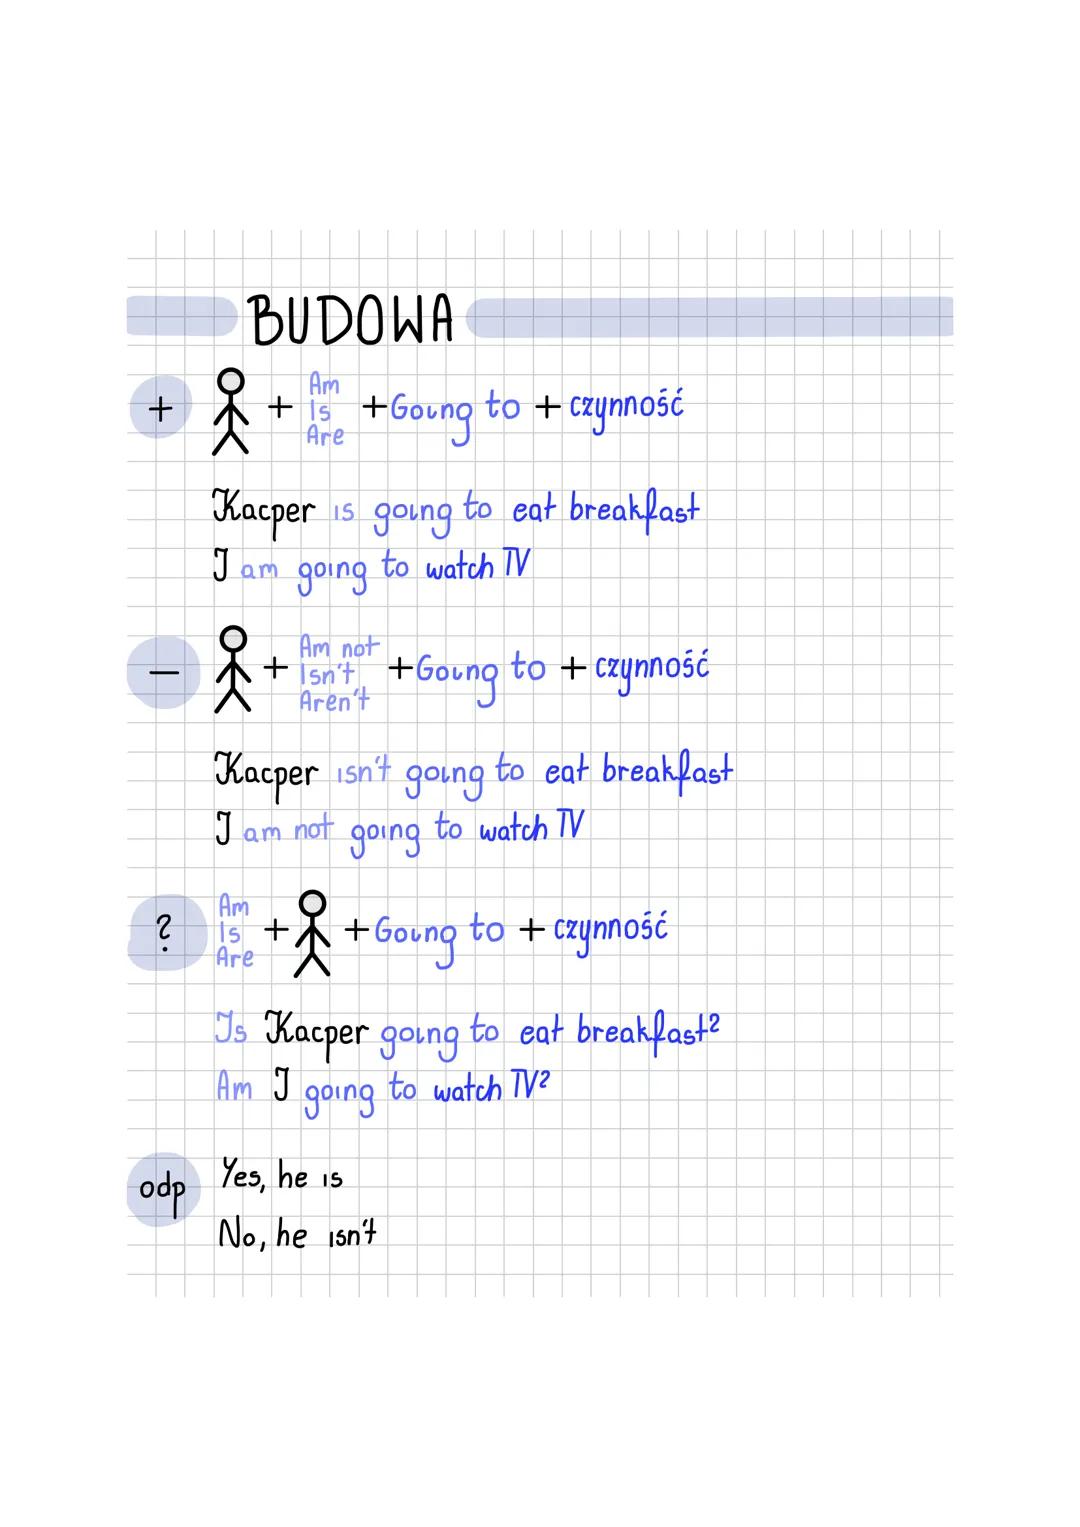 BUDOWA
+ + Am Is Are +Going to + czynność
Kacper is going to eat breakfast
I am going to watch TV
— + Am not Isn't Aren't +Going to + czynność
Kacper isn't going to eat breakfast
I am not going to watch TV
? Am Is Are + +Going to + czynność
Is Kacper going to eat breakfast?
Am I going to watch TV?
odp Yes, he is
No, he isn't